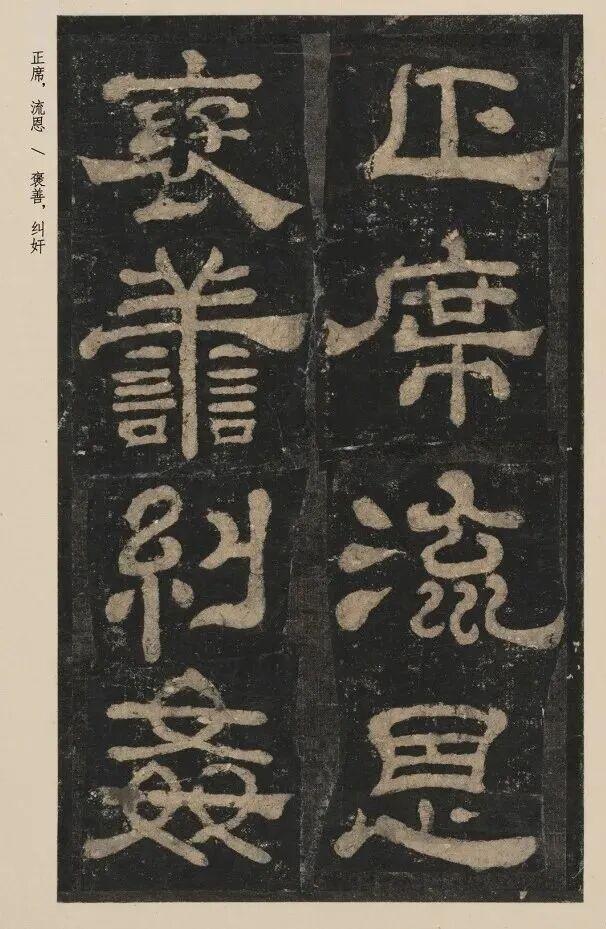 正席流恩
褒譱糾姦
正席，流恩／褒善，纠奸